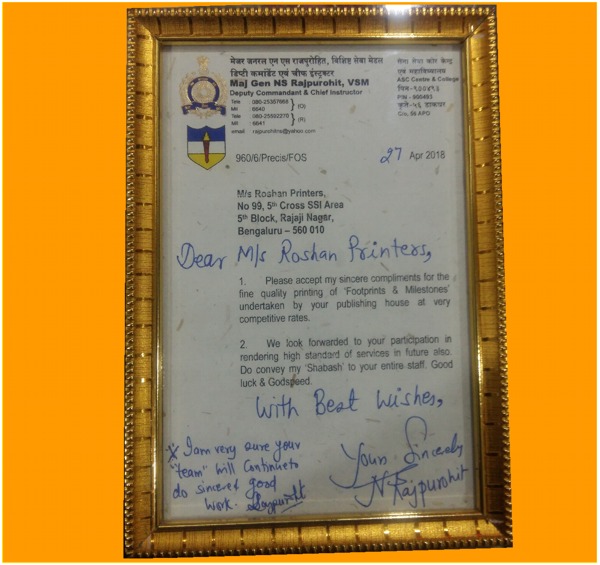 मेजर जनरल एन एस राजपुरोहित, विशिष्ट सेवा मेडल
डिप्टी कमांडेंट एवं चीफ इंस्ट्रक्टर
Maj Gen NS Rajpurohit, VSM
Deputy Commandant & Chief Instructor
Tele : 080-25367668 } (O)
Mil : 6640
Tele : 080-25592270 } (R)
Mil : 6641
email : rajpurohitns@yahoo.com
सेना सेवा कोर केन्द्र
एवं महाविद्यालय
ASC Centre & College
पिन -९००४९३
PIN - 900493
द्वारा -५६ डाकघर
C/o, 56 APO
960/6/Precis/FOS
27 Apr 2018
M/s Roshan Printers,
No 99, 5th Cross SSI Area
5th Block, Rajaji Nagar,
Bengaluru – 560 010
Dear M/s Roshan Printers,
1. Please accept my sincere compliments for the
fine quality printing of 'Footprints & Milestones'
undertaken by your publishing house at very
competitive rates.
2. We look forwarded to your participation in
rendering high standard of services in future also.
Do convey my 'Shabash' to your entire staff. Good
luck & Godspeed.
With Best Wishes,
* I am very sure your
"team" will continue to
do sincere & good
work. Rajpurohit
Yours Sincerely
N Rajpurohit